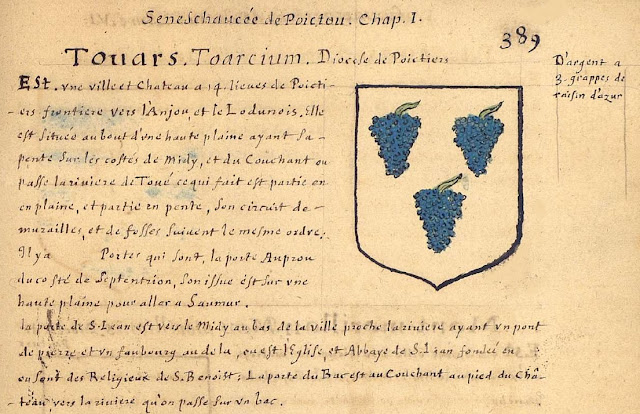 Seneschaucée de Poictou. Chap. I.
389
Touars. Toarcium. Diocese de Poictiers
D'argent a
3. grappes de
raisin d'azur
Est. vne ville et Chateau a 14. lieues de Poicti-
ers frontiere vers l'Anjou et le Lodunois. Elle
est située au bout d'vne haute plaine ayant sa
pente sur les costés de Midy, et du Couchant ou
passe la riviere de Toué ce qui fait est partie en
en plaine, et partie en pente, son circuit de
murailles, et de fosses suivent le mesme ordre.
Il y a Portes qui sont, la porte Auprou
du costé de Septentrion, son issue est sur vne
haute plaine pour aller a Saumur.
la porte de S. Iean est vers le Midy au bas de la ville proche la riviere ayant vn pont
de pierre et vn faubourg au de la, ou est l'Eglise et Abbaye de S. Iean fondeé en
en sont des Religieux de S. Benoist: La porte du Bac est au Couchant au pied du Châ-
teau, vers la riviere qu'on passe sur vn bac.